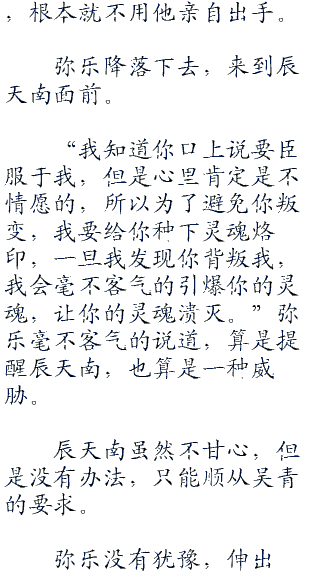 ，根本就不用他亲自出手。
弥乐降落下去，来到辰
天南面前。
“我知道你口上说要臣
服于我，但是心里肯定是不
情愿的，所以为了避免你叛
变，我要给你种下灵魂烙
印，一旦我发现你背叛我，
我会毫不客气的引爆你的灵
魂，让你的灵魂溃灭。”弥
乐毫不客气的说道，算是提
醒辰天南，也算是一种威
胁。
辰天南虽然不甘心，但
是没有办法，只能顺从吴青
的要求。
弥乐没有犹豫，伸出